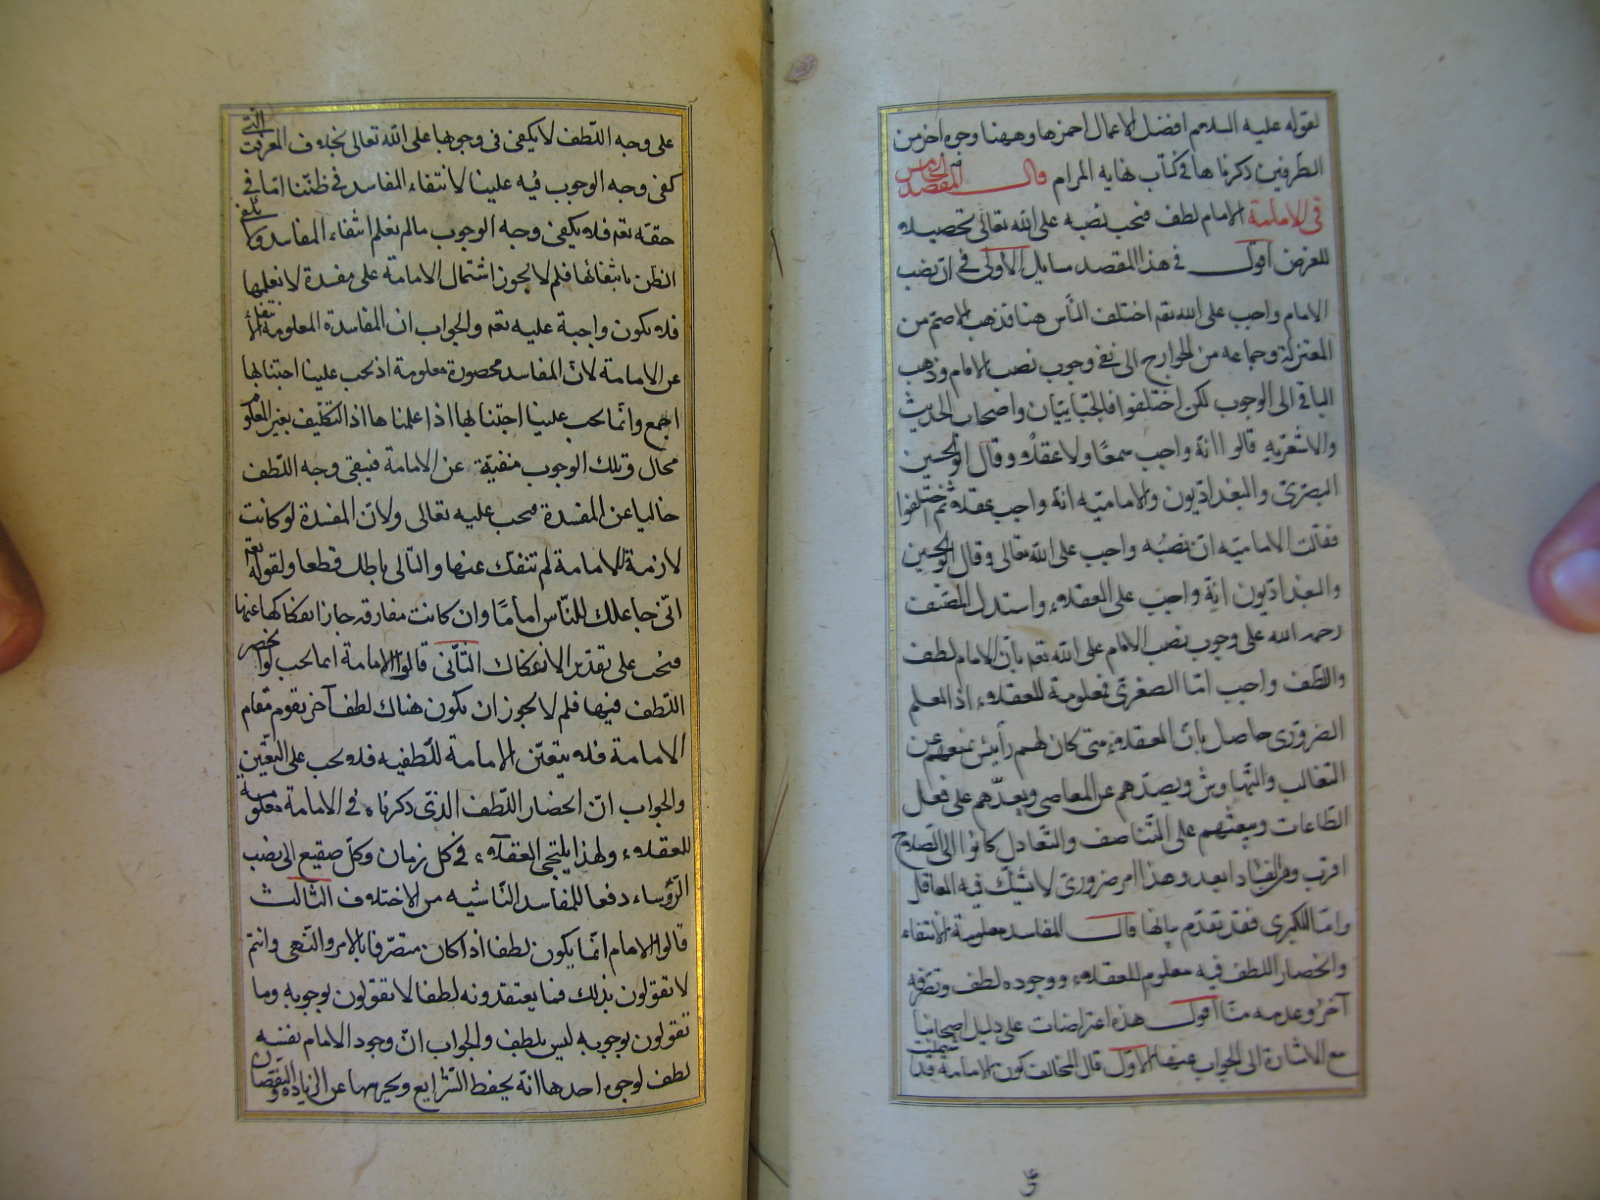 لقوله عليه السلام افضل الاعمال احمزها وههنا وجوه اخر من
الطرفين ذكرناها فى كتاب نهاية المرام قال المقصد الخامس
فى الامامة الامام لطف فيجب نصبه على الله تعالى تحصيلا
للغرض اقول فى هذا المقصد مسايل الاولى فى ان نصب
الامام واجب على الله تعه اختلف الناس هنا فذهب الاصم من
المعتزلة وجماعه من الخوارج الى نفى وجوب نصب الامام وذهب
الباقى الى الوجوب لكن اختلفوا فالجبائيان واصحاب الحديث
والاشعريه قالوا انه واجب سمعًا ولا عقلا وقال ابو الحسين
البصرى والبغداديون والاماميه انه واجب عقلا ثم اختلفوا
فقالت الاماميه ان نصبه واجب على الله تعالى وقال ابو الحسين
والبغداديون انه واجب على العقلاء واستدل المصنف
رحمه الله على وجوب نصب الامام على الله تعه بان الامام لطف
واللطف واجب اما الصغرى فمعلومة للعقلاء اذ العلم
الضرورى حاصل بان العقلاء متى كان لهم رأيس يمنعهم عن
التغالب والتهاوش ويصدهم عن المعاصى ويعدهم على فعل
الطاعات ويبعثهم على التناصف والتعادل كانوا الى الصلاح
اقرب ومن الفساد ابعد وهذا امر ضرورى لا يشك فيه العاقل
واما الكبرى فقد تقدم بيانها قال المفاسد معلومة الانتفاء
وانحصار اللطف فيه معلوم للعقلاء ووجوده لطف وتصرفه
آخر وعدمه منا اقول هذه اعتراضات على دليل اصحابنا
مع الاشارة الى الجواب عنها الاول قال المخالف كون الامامة قد اشتملت
على وجه اللطف لا يكفى فى وجوبها على الله تعالى بخلاف المعرفة التى
كفى وجه الوجوب فيه علينا لانتفاء المفاسد فى ظننا اما فى
حقه تعه فلا يكفى وجه الوجوب ما لم يعلم انتفاء المفاسد ولا يكفى
الظن بانتفائها فلم لا يجوز اشتمال الامامة على مفسدة لا نعلمها
فلا يكون واجبة عليه تعه والجواب ان المفاسدة المعلومة الانتفاء
عن الامامة لان المفاسد محصورة معلومة اذ يجب علينا اجتنابها
اجمع وانما يجب علينا اجتنابها اذا علمناها اذ التكليف بغير المعلوم
محال وتلك الوجوب منفية عن الامامة فيبقى وجه اللطف
خاليا عن المفسدة فيجب عليه تعالى ولان المفسدة لو كانت
لازمة للامامة لم تنفك عنها والتالى باطل قطعا ولقوله تعه
انى جاعلك للناس اماما وان كانت مفارقه جاز انفكاكها عنها
فيجب على تقدير الانفكاك الثانى قالوا الامامة انما يجب لو انحصر
اللطف فيها فلم لا يجوز ان يكون هناك لطف آخر يقوم مقام
الامامة فلا يتعين الامامة للطفيه فلا يجب على التعيين
والجواب ان انحصار اللطف الذى ذكرناه فى الامامة معلومة
للعقلاء ولهذا يلتجى العقلاء فى كل زمان وكل صقيع الى نصب
الرؤساء دفعا للمفاسد الناشيه من الاختلاف الثالث
قالوا الامام انما يكون لطفا اذا كان متصرفا بالامر والنهى وانتم
لا تقولون بذلك فما يعتقدونه لطفا لا تقولون بوجوبه وما
تقولون بوجوبه ليس بلطف والجواب ان وجود الامام بنفسه
لطف لوجوه احدها انه يحفظ الشرايع ويحرسها عن الزيادة والنقصان